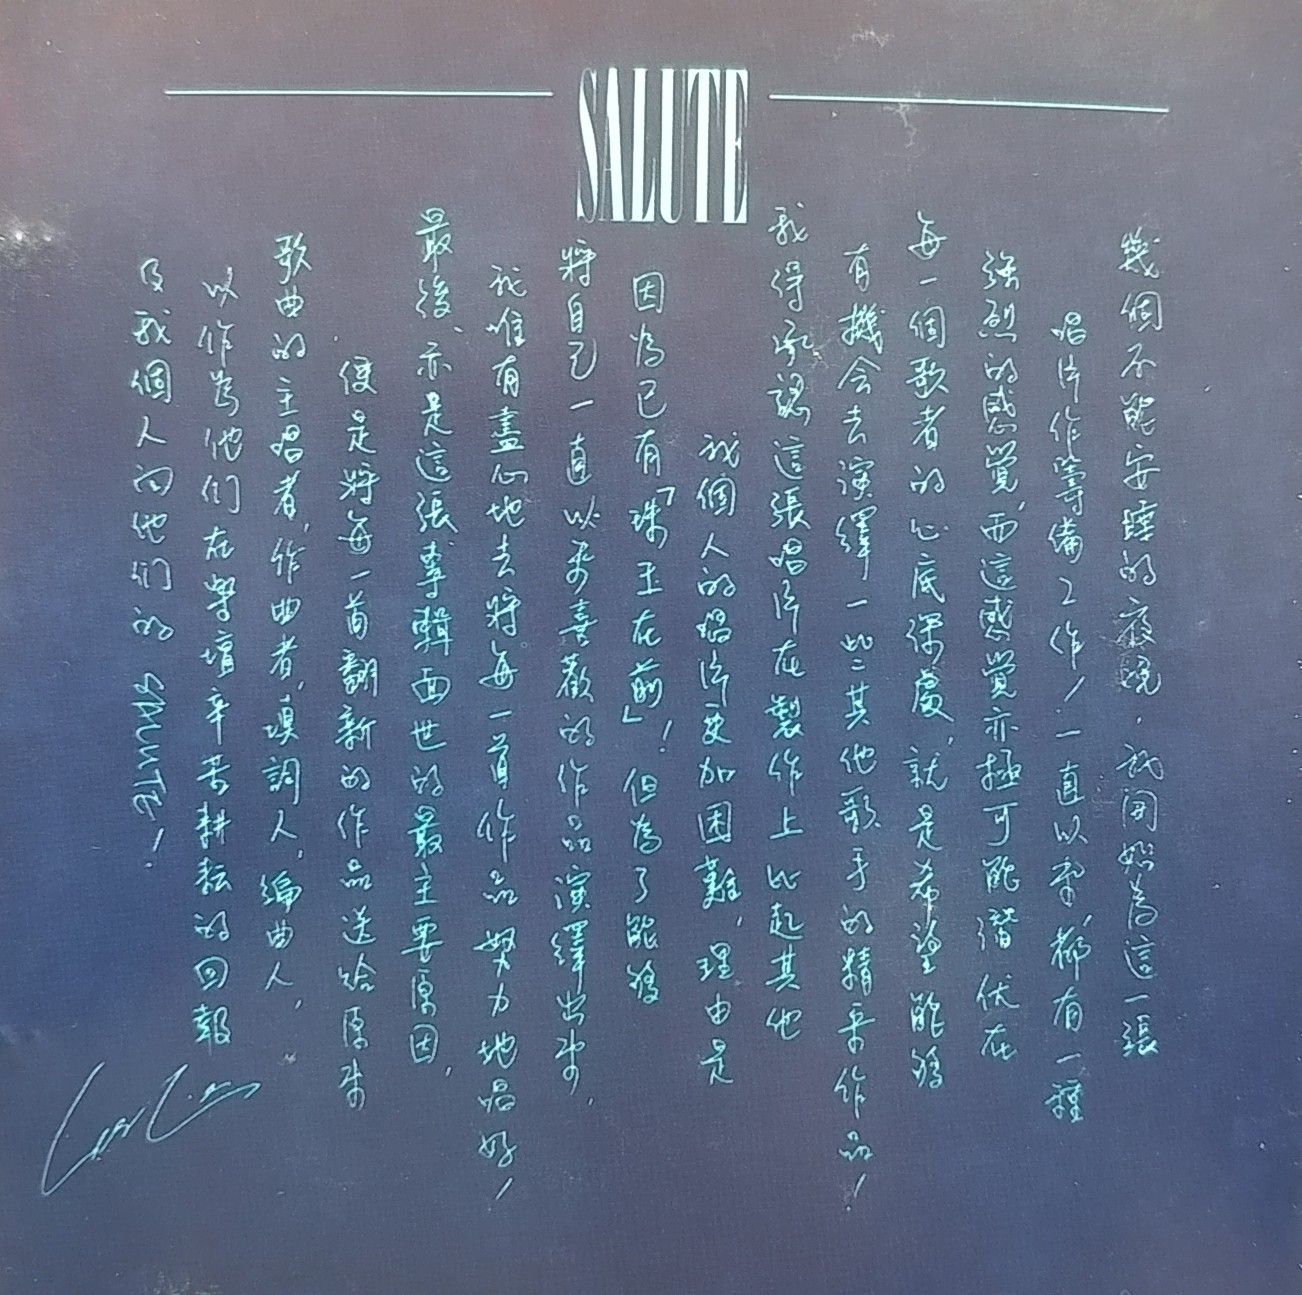 SALUTE
幾個不能安睡的夜晚，我開始為這一張
唱片作籌備工作！一直以來，都有一種
強烈的感覺，而這感覺亦極可能潛伏在
每一個歌者的心底深處，就是希望能夠
有機會去演繹一些其他歌手的精采作品！
我得承認這張唱片在製作上比起其他
我個人的唱片更加困難，理由是
因為已有「珠玉在前」！但為了能夠
將自己一直以來喜歡的作品演繹出來，
我唯有盡心地去將每一首作品努力地唱好！
最後、亦是這張專輯面世的最主要原因，
便是將每一首翻新的作品送給原來
歌曲的主唱者，作曲者，填詞人，編曲人，
以作為他們在樂壇辛苦耕耘的回報
及我個人向他們的 SALUTE！